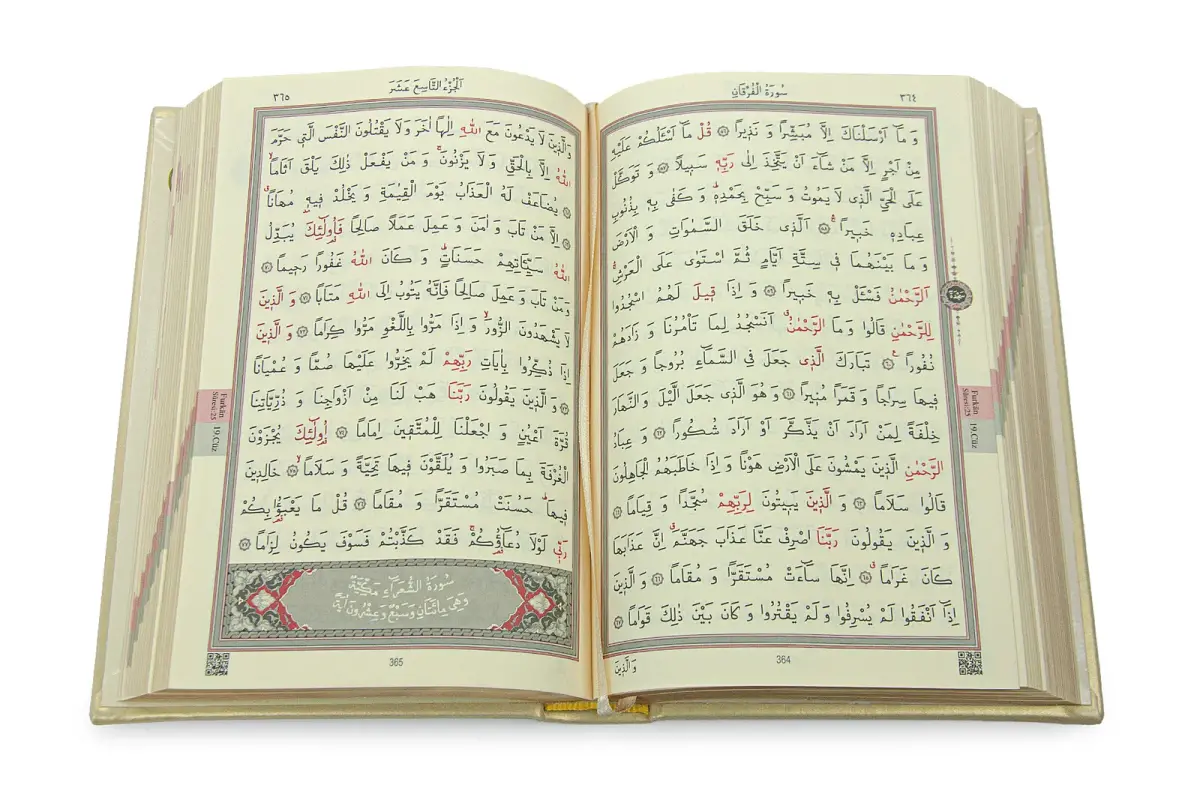 سُورَةُ الْفُرْقَانِ
٣٦٤
وَ مَٓا اَرْسَلْنَاكَ اِلَّا مُبَشِّرًا وَ نَذٖيرًا ﴿٥٦﴾ قُلْ مَٓا اَسْـَٔلُكُمْ عَلَيْهِ
مِنْ اَجْرٍ اِلَّا مَنْ شَٓاءَ اَنْ يَتَّخِذَ اِلٰى رَبِّهٖ سَبٖيلًا ﴿٥٧﴾ وَ تَوَكَّلْ
عَلَى الْحَيِّ الَّذٖى لَا يَمُوتُ وَ سَبِّحْ بِحَمْدِهٖ وَ كَفٰى بِهٖ بِذُنُوبِ
عِبَادِهٖ خَبٖيرًا ﴿٥٨﴾ اَلَّذٖى خَلَقَ السَّمٰوَاتِ وَ الْاَرْضَ
وَ مَا بَيْنَهُمَا فٖى سِتَّةِ اَيَّامٍ ثُمَّ اسْتَوٰى عَلَى الْعَرْشِ
اَلرَّحْمٰنُ فَسْـَٔلْ بِهٖ خَبٖيرًا ﴿٥٩﴾ وَ اِذَا قٖيلَ لَهُمُ اسْجُدُوا
لِلرَّحْمٰنِ قَالُوا وَ مَا الرَّحْمٰنُ اَنَسْجُدُ لِمَا تَأْمُرُنَا وَ زَادَهُمْ
نُفُورًا ﴿٦٠﴾ تَبَارَكَ الَّذٖى جَعَلَ فِي السَّمَٓاءِ بُرُوجًا وَ جَعَلَ
فٖيهَا سِرَاجًا وَ قَمَرًا مُنٖيرًا ﴿٦١﴾ وَ هُوَ الَّذٖى جَعَلَ الَّيْلَ وَ النَّهَارَ
خِلْفَةً لِمَنْ اَرَادَ اَنْ يَذَّكَّرَ اَوْ اَرَادَ شُكُورًا ﴿٦٢﴾ وَ عِبَادُ
الرَّحْمٰنِ الَّذٖينَ يَمْشُونَ عَلَى الْاَرْضِ هَوْنًا وَ اِذَا خَاطَبَهُمُ الْجَاهِلُونَ
قَالُوا سَلَامًا ﴿٦٣﴾ وَ الَّذٖينَ يَبٖيتُونَ لِرَبِّهِمْ سُجَّدًا وَ قِيَامًا ﴿٦٤﴾
وَ الَّذٖينَ يَقُولُونَ رَبَّنَا اصْرِفْ عَنَّا عَذَابَ جَهَنَّمَ اِنَّ عَذَابَهَا
كَانَ غَرَامًا ﴿٦٥﴾ اِنَّهَا سَٓاءَتْ مُسْتَقَرًّا وَ مُقَامًا ﴿٦٦﴾ وَ الَّذٖينَ
اِذَٓا اَنْفَقُوا لَمْ يُسْرِفُوا وَ لَمْ يَقْتُرُوا وَ كَانَ بَيْنَ ذٰلِكَ قَوَامًا ﴿٦٧﴾
وَ الَّذٖينَ
364
Furkân
Sûresi/25
19.Cüz
اَلْجُزْءُ التَّاسِعَ عَشَرَ
٣٦٥
وَ الَّذٖينَ لَا يَدْعُونَ مَعَ اللّٰهِ اِلٰهًا اٰخَرَ وَ لَا يَقْتُلُونَ النَّفْسَ الَّتٖى حَرَّمَ
اللّٰهُ اِلَّا بِالْحَقِّ وَ لَا يَزْنُونَ وَ مَنْ يَفْعَلْ ذٰلِكَ يَلْقَ اَثَامًا
﴿٦٨﴾ يُضَاعَفْ لَهُ الْعَذَابُ يَوْمَ الْقِيٰمَةِ وَ يَخْلُدْ فٖيهٖ مُهَانًا
﴿٦٩﴾ اِلَّا مَنْ تَابَ وَ اٰمَنَ وَ عَمِلَ عَمَلًا صَالِحًا فَاُو۬لٰٓئِكَ يُبَدِّلُ
اللّٰهُ سَيِّـَٔاتِهِمْ حَسَنَاتٍ وَ كَانَ اللّٰهُ غَفُورًا رَحٖيمًا ﴿٧٠﴾
وَ مَنْ تَابَ وَ عَمِلَ صَالِحًا فَاِنَّهُ يَتُوبُ اِلَى اللّٰهِ مَتَابًا ﴿٧١﴾ وَ الَّذٖينَ
لَا يَشْهَدُونَ الزُّورَ وَ اِذَا مَرُّوا بِاللَّغْوِ مَرُّوا كِرَامًا ﴿٧٢﴾ وَ الَّذٖينَ
اِذَا ذُكِّرُوا بِاٰيَاتِ رَبِّهِمْ لَمْ يَخِرُّوا عَلَيْهَا صُمًّا وَ عُمْيَانًا
﴿٧٣﴾ وَ الَّذٖينَ يَقُولُونَ رَبَّنَا هَبْ لَنَا مِنْ اَزْوَاجِنَا وَ ذُرِّيَّاتِنَا
قُرَّةَ اَعْيُنٍ وَ اجْعَلْنَا لِلْمُتَّقٖينَ اِمَامًا ﴿٧٤﴾ اُو۬لٰٓئِكَ يُجْزَوْنَ
الْغُرْفَةَ بِمَا صَبَرُوا وَ يُلَقَّوْنَ فٖيهَا تَحِيَّةً وَ سَلَامًا ﴿٧٥﴾ خَالِدٖينَ
فٖيهَا حَسُنَتْ مُسْتَقَرًّا وَ مُقَامًا ﴿٧٦﴾ قُلْ مَا يَعْبَؤُ۬ا بِكُمْ
رَبّٖى لَوْلَا دُعَٓاؤُ۬كُمْ فَقَدْ كَذَّبْتُمْ فَسَوْفَ يَكُونُ لِزَامًا ﴿٧٧﴾
سُورَةُ الشُّعَرَٓاءِ مَكِّيَّةٌ
وَهِىَ مِائَتَانِ وَسَبْعٌ وَعِشْرُونَ اٰيَةً
365
Furkân
Sûresi/25
19.Cüz